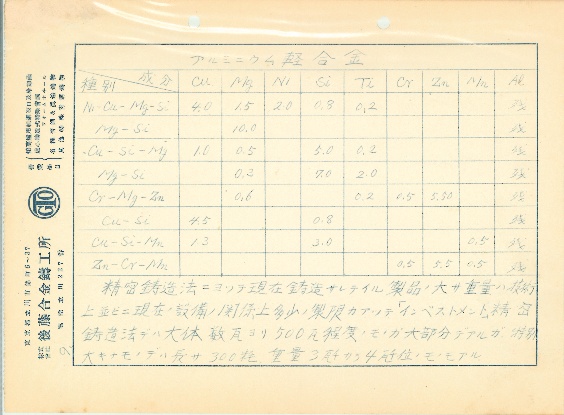 アルミニウム軽合金
種別 成分 Cu Mg Ni Si Ti Cr Zn Mn Al
Ni-Cu-Mg-Si 4.0 1.5 2.0 0.8 0.2 残
Mg-Si 10.0 残
Cu-Si-Mg 1.0 0.5 5.0 0.2 残
Mg-Si 0.2 7.0 2.0 残
Cr-Mg-Zn 0.6 0.2 0.5 5.50 残
Cu-Si 4.5 0.8 残
Cu-Si-Mn 1.3 3.0 0.5 残
Zn-Cr-Mn 0.5 5.5 0.5 残
精密鋳造法ニヨツテ現在鋳造サレテイル製品ノ大サ重量ハ技術
上並ビニ現在ノ設備ノ関係上多少ノ製限ガアツテ「インベストメント」精密
鋳造法デハ大体 数瓦ヨリ500瓦程度ノモノガ大部分デアルガ 特別
大キナモノデハ長サ300粍 重量3瓩カラ4瓩位ノモノモアル
株式会社 後藤合金鋳工所
東京都立川市
GTO
営業品目
2